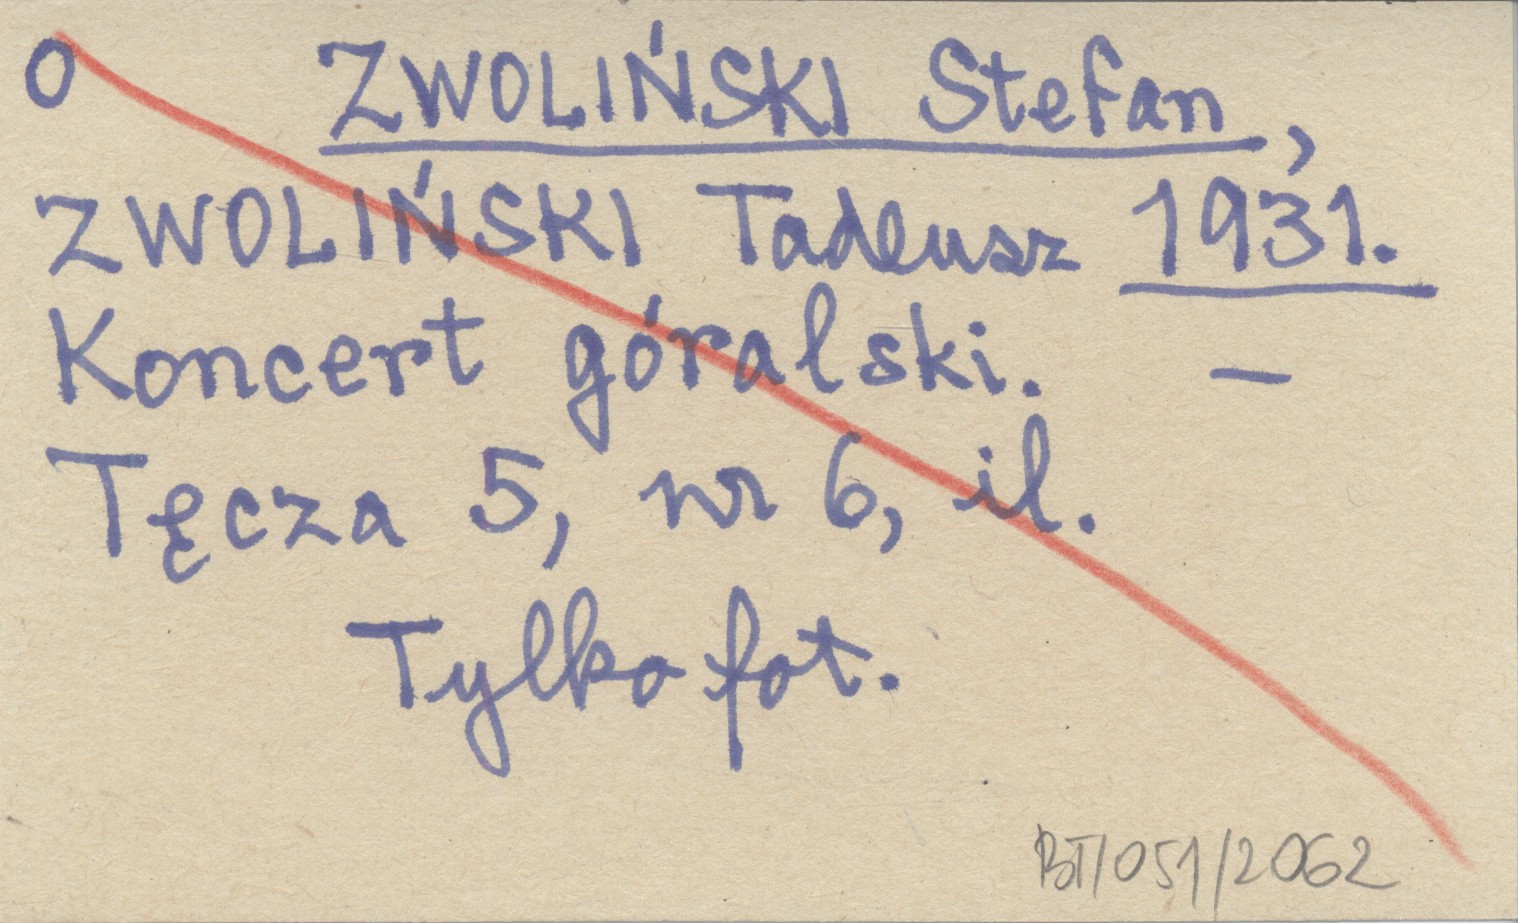 O ZWOLIŃSKI Stefan,
ZWOLIŃSKI Tadeusz 1931.
Koncert góralski. –
Tęcza 5, nr 6, il.
Tylko fot.
BT/051/2062